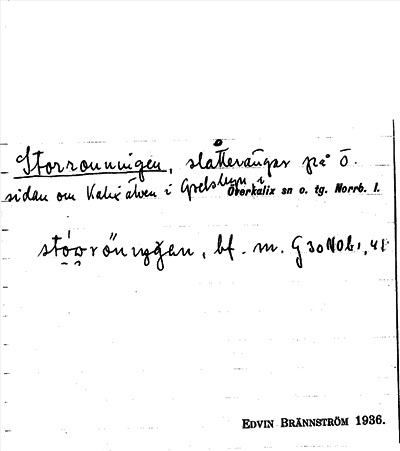 Storronningen, slåtterängar på ö.
sidan om Kalixälven i Grelsbyn i Överkalix sn o. tg. Norrb. l.
bf. m. G 30 NOb1, 41
EDVIN BRÄNNSTRÖM 1936.